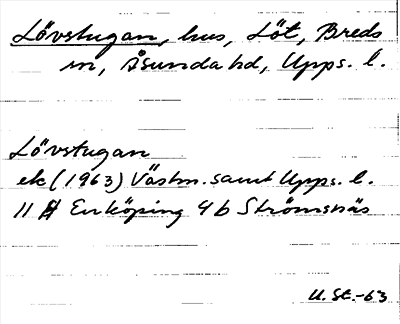 Lövstugan, hus, Löt, Breds
sn, Åsunda hd, Upps. l.
Lövstugan
ek (1963) Västm. samt Upps. l.
11 H Enköping 4 b Strömsnäs
U. St.-63